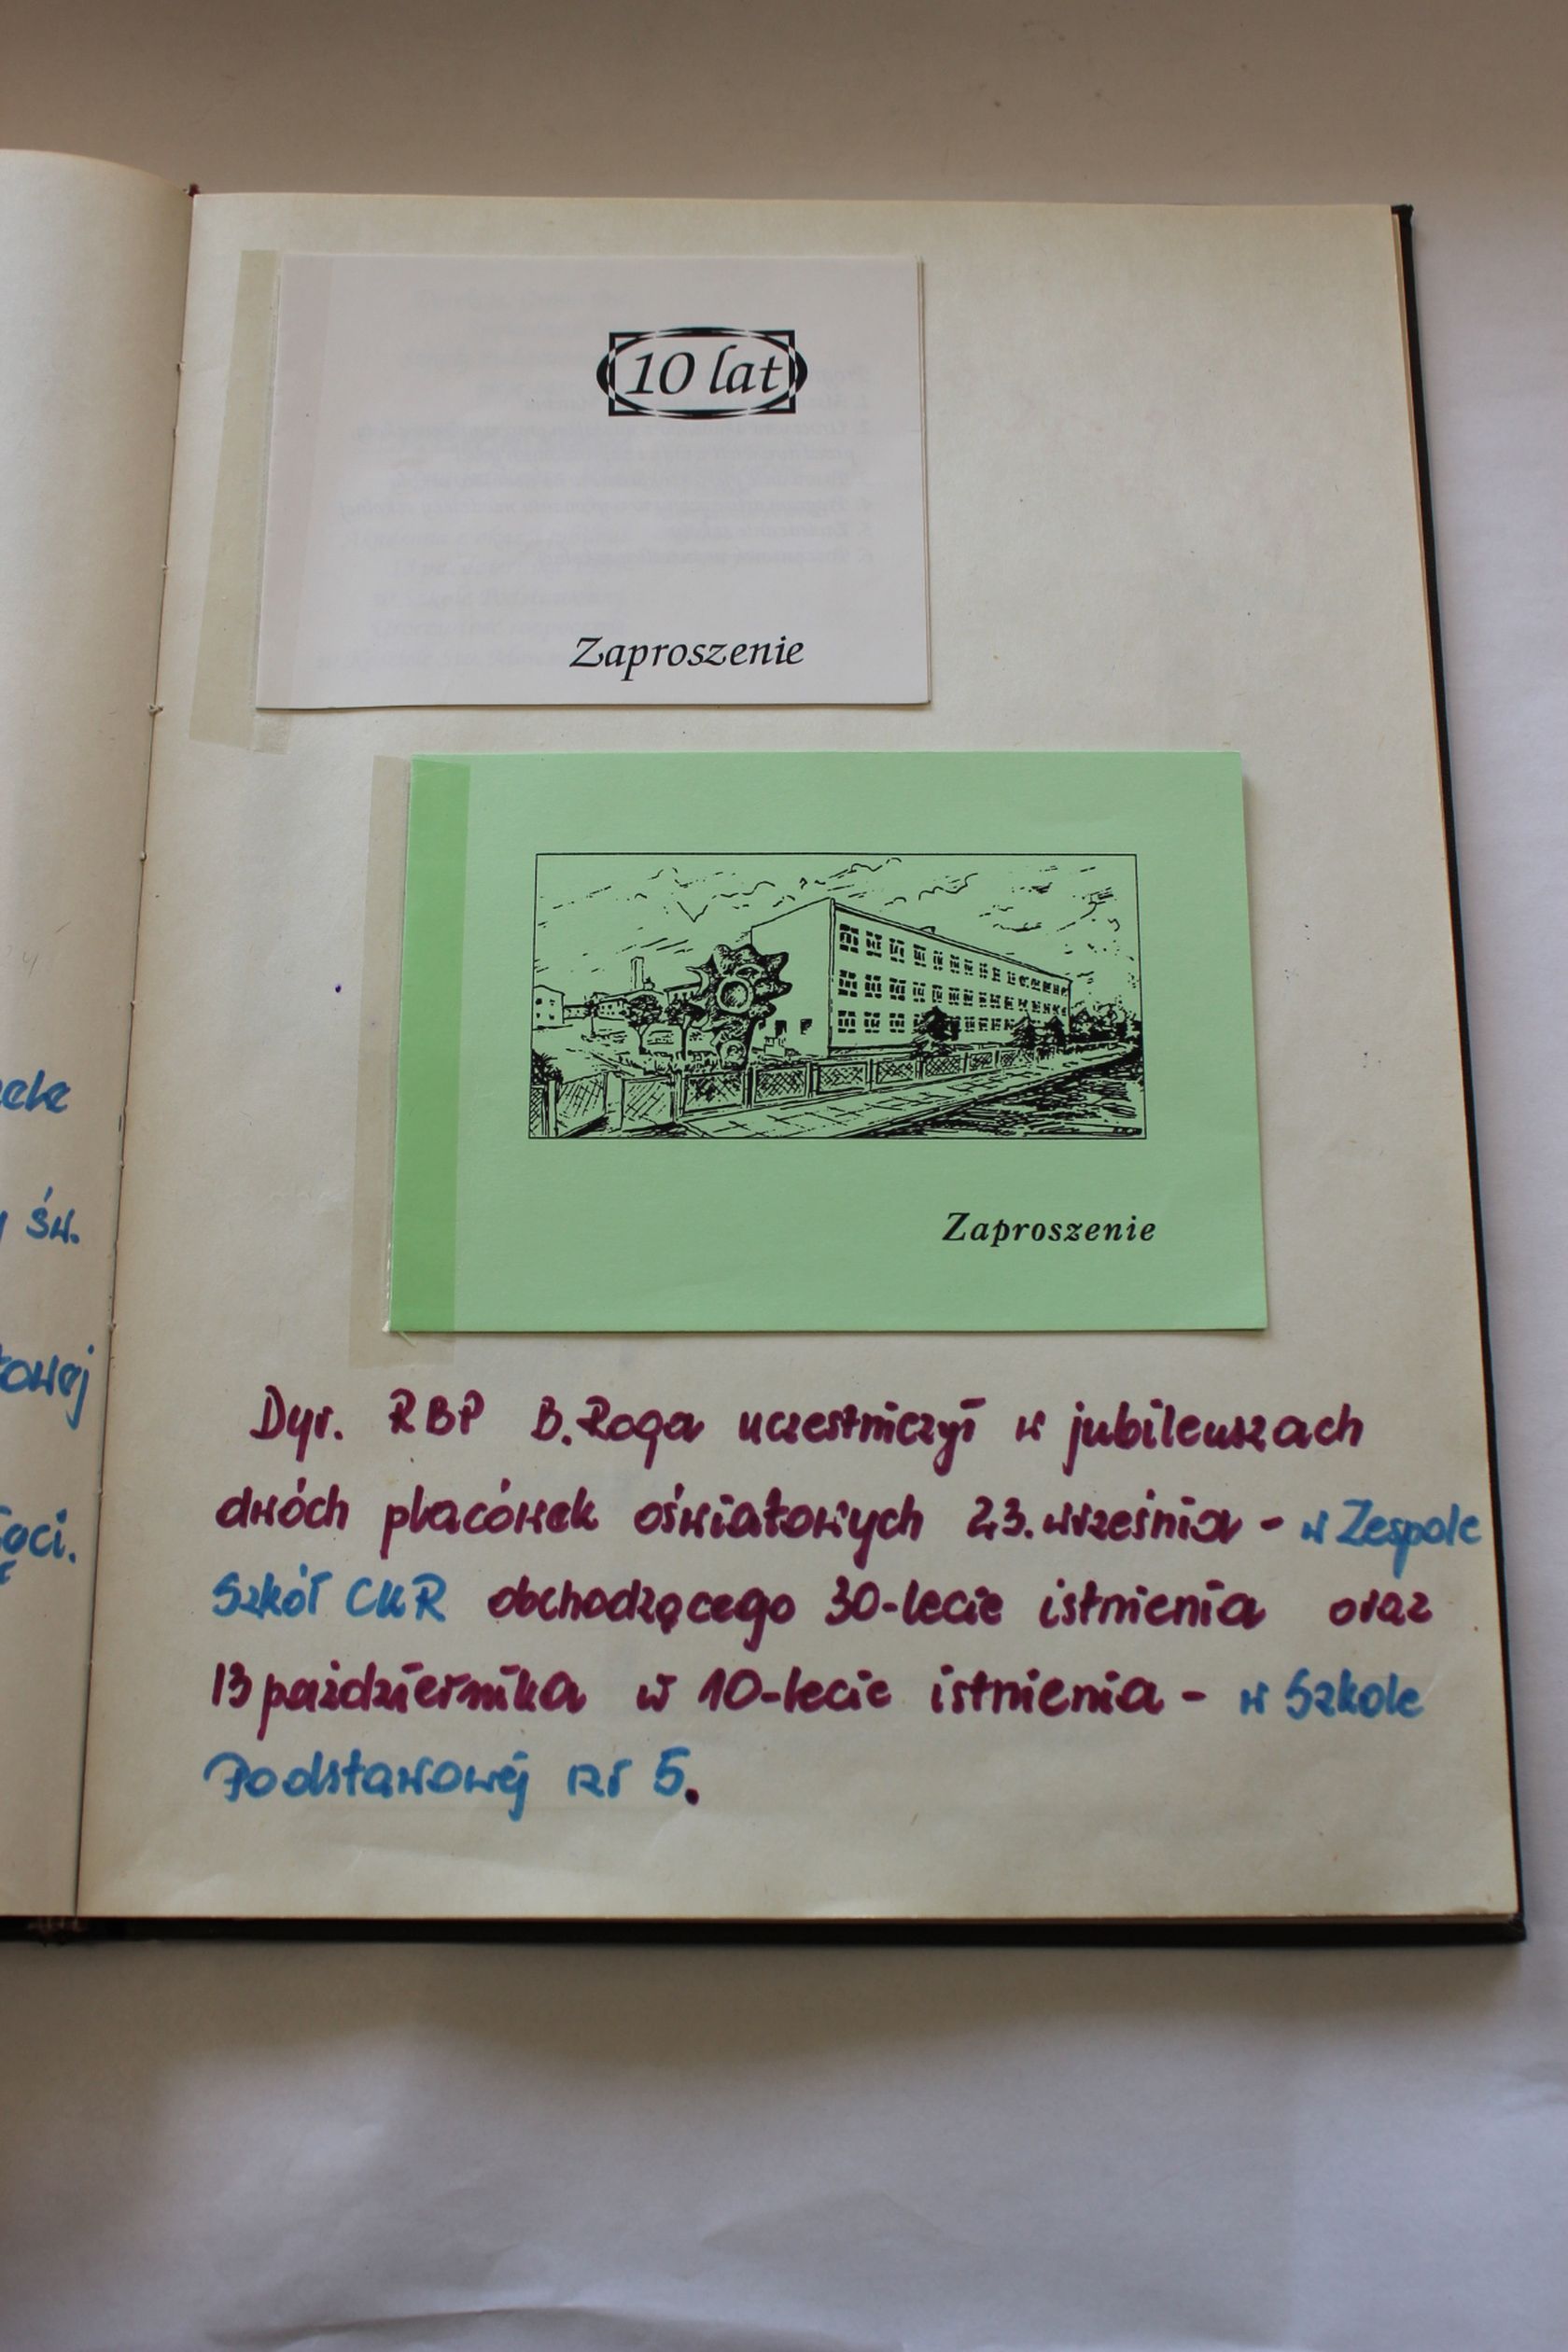 10 lat
Zaproszenie
Zaproszenie
Dyr. RBP B. Roga uczestniczył w jubileuszach
dwóch placówek oświatowych 23. września - w Zespole
Szkół CKR obchodzącego 30-lecie istnienia oraz
13 października w 10-lecie istnienia - w Szkole
Podstawowej nr 5.
św.